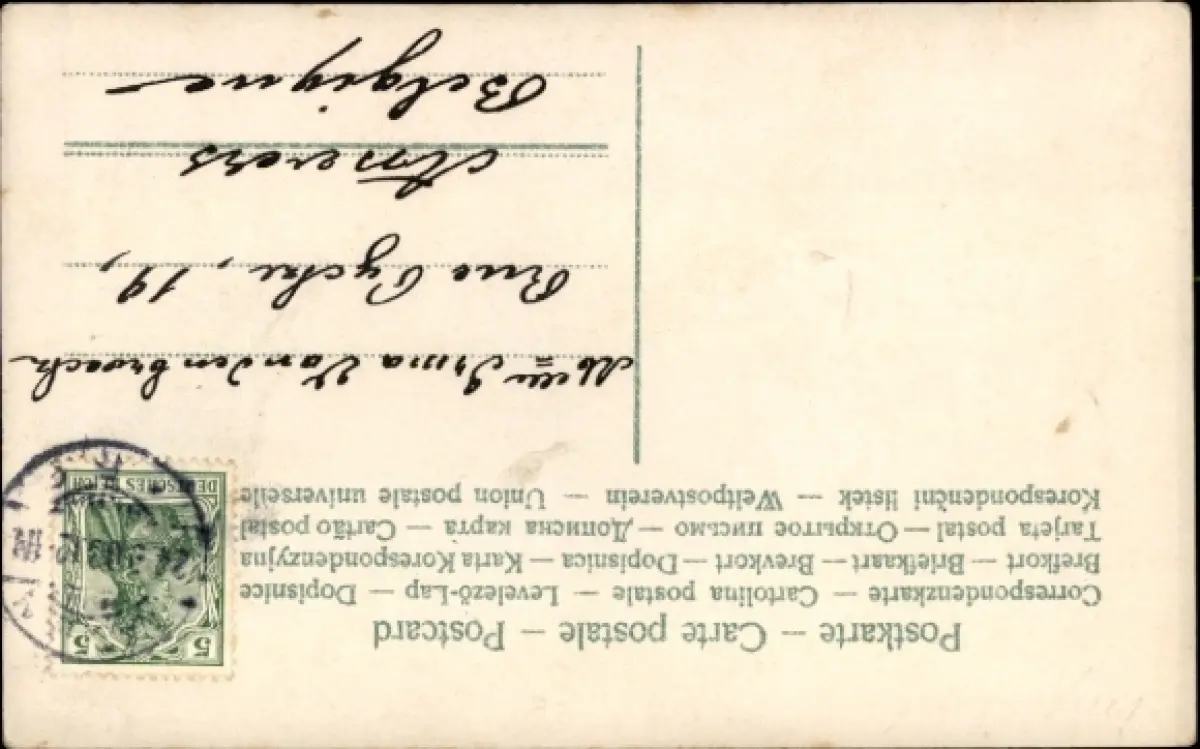 Postkarte – Carte postale – Postcard
Correspondenzkarte – Cartolina postale – Levelező-Lap – Dopisnice
Brefkort – Briefkaart – Brevkort – Dopisnica – Karta Korespondenzyjna
Tarjeta postal – Открытое письмо – Дописна карта – Cartão postal
Korespondenční lístek – Weltpostverein – Union postale universelle
5 5
DEUTSCHES REICH
Mlle Irma Vandenbroeck
Rue 19,
Anvers
Belgique